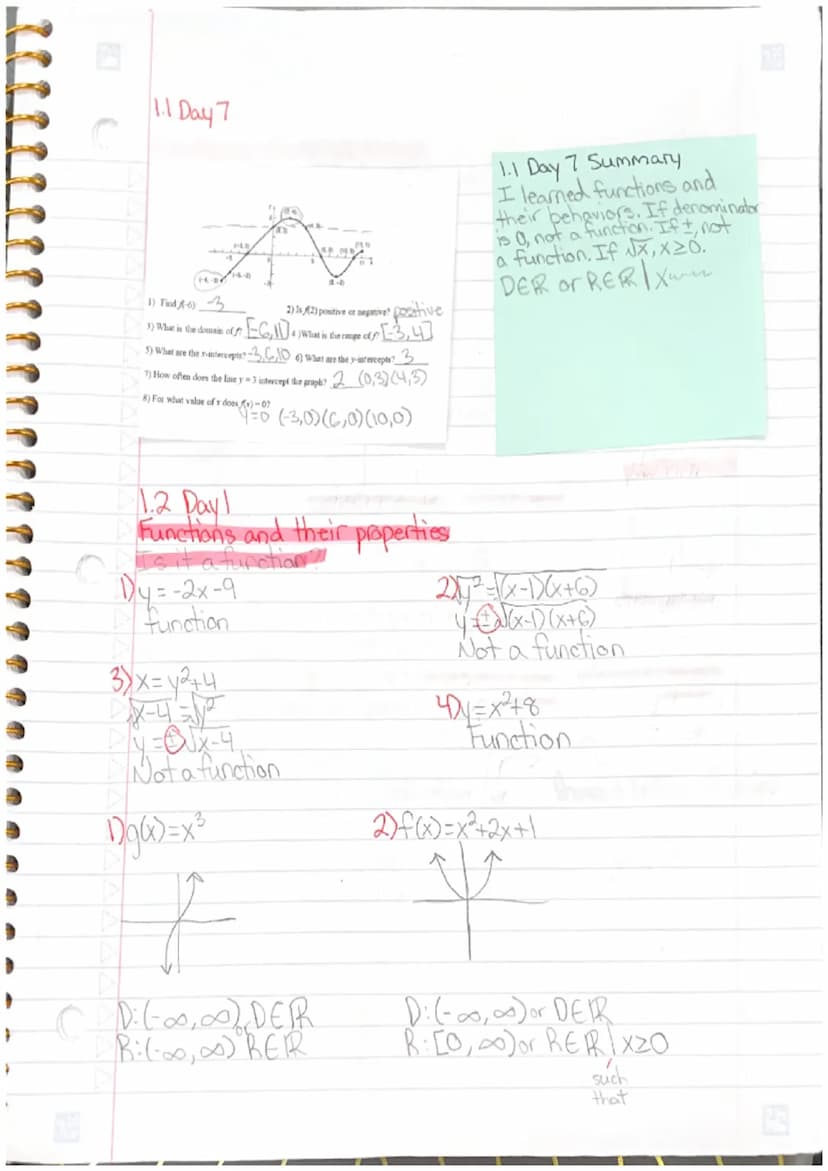 1.1 Day 7
1) Find f(-6) -3
2) Is f(2) positive or negative? positive
3) What is the domain of f? [-6,11]
4) What is the range of f? [-3,4]
5) What are the x-intercepts? -3,6,10
6) What are the y-intercepts? 3
7) How often does the line y = 3 intercept the graph? 2 (0,3)(4,3)
8) For what value of x does f(x) = 0?
y=0 (-3,0)(6,0)(10,0)
1.1 Day 7 Summary
I learned functions and
their behaviors. If denominator
is 0, not a function. If ±, not
a function. If √x, x≥0.
DEℝ or REℝ | x
1.2 Day 1
Functions and their properties
Is it a function?
1) y = -2x-9
function
2) √y² = √(x-1)(x+6)
y = ±√(x-1)(x+6)
Not a function
3) x = y²+4
√x-4 = √y²
y = ±√x-4
Not a function
4) y = x²+8
Function
1) g(x) = x³
2) f(x) = x²+2x+1
D: (-∞,∞) or DEℝ
R: (-∞,∞) REℝ
D: (-∞,∞) or DEℝ
R: [0,∞) or REℝ | x≥0
such
that